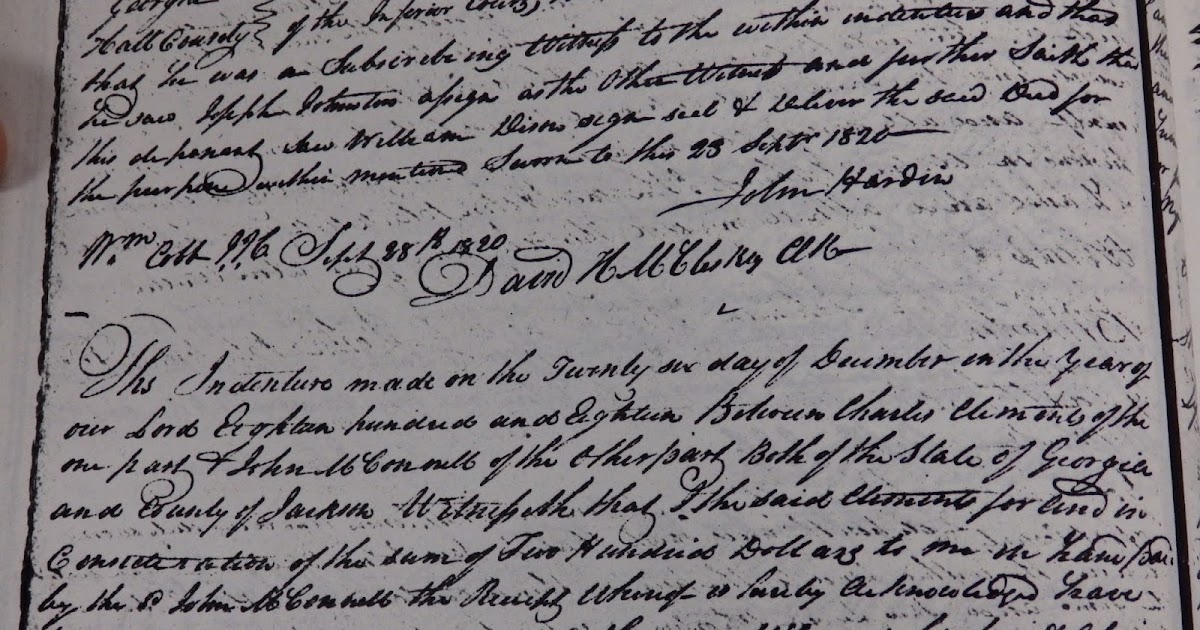 Georgia
Hall County } of the Inferior Court,
that he was a Subscribeing Witness to the within indenture and that
he saw Joseph Johnston assign as the Other Witness and further Saith that
this deponant saw William Dison sign seal & deliver the said Deed for
the purpose within mentioned Sworn to this 23 Septr 1820
John Hardin
Wm Cobb J.I.C. Sept 28th 1820
David H McCleskey Clk
This Indenture made on the Twenty six day of December in the Year of
our Lord Eighteen hundred and Eighteen Between Charles Clements of the
one part & John McConnell of the Other part Both of the State of Georgia
and County of Jackson Witnesseth that I the said Clements for and in
Consideration of the sum of Two Hundred Dollars to me in hand pai
by the sd John McConnell the Receipt Whereof is hereby Acknowledged have